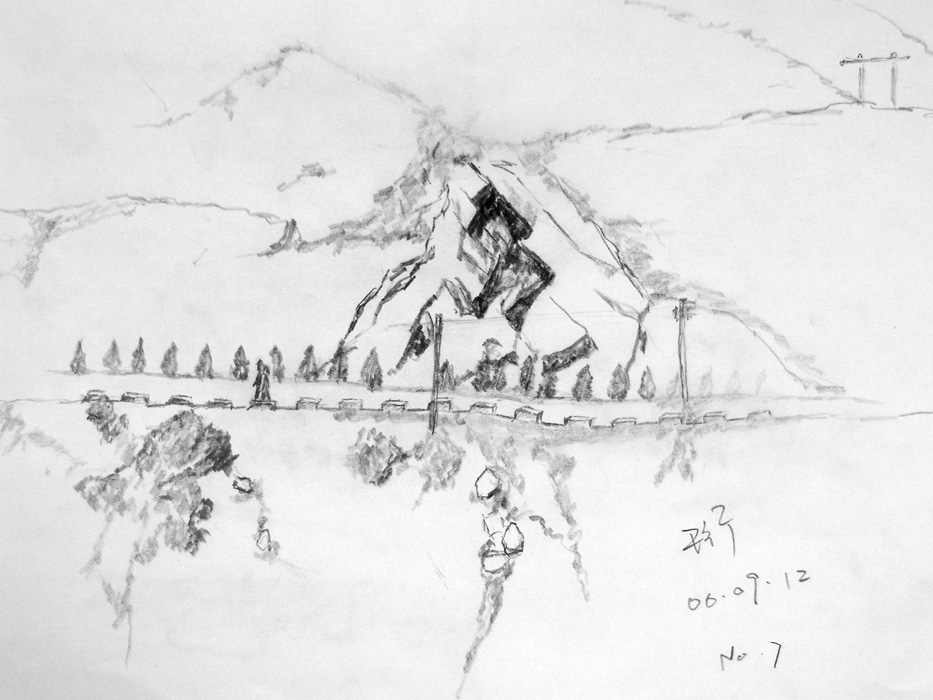 06.09.12
No.7